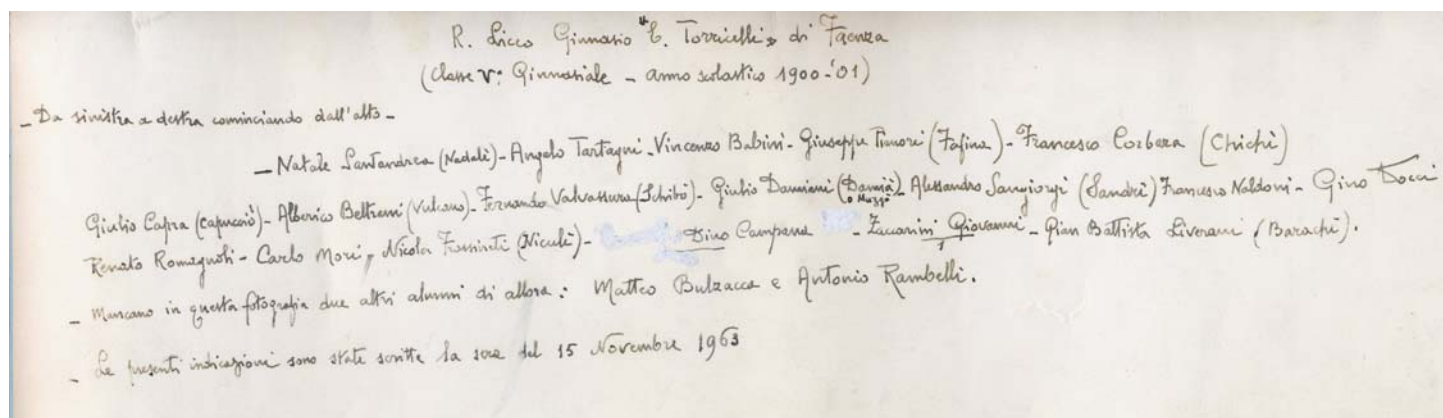 R. Liceo Ginnasio "E. Torricelli" di Faenza
(Classe V: Ginnasiale - anno scolastico 1900-'01)
- Da sinistra a destra cominciando dall'alto -
- Natale Santandrea (Nadalì) - Angelo Tartagni - Vincenzo Babini - Giuseppe (Fafina) - Francesco Corbara (Chichì)
Giulio Capra (capucciò) - Alberico Beltrani (Vulcano) - Fernando Valvassura (Schibò) - Giulio Damiani (Damià) - Alessandro Sangiorgi (Sandrì) Francesco Naldoni - Gino Docci
o Muzzò
Renato Romagnoli - Carlo Mori, Nicola (Niculì) - Dino Campana - Zaccarini Giovanni - Gian Battista Liverani (Barachì).
- Mancano in questa fotografia due altri alunni di allora: Matteo Bulzacca e Antonio Rambelli.
- Le presenti indicazioni sono state scritte la sera del 15 Novembre 1963